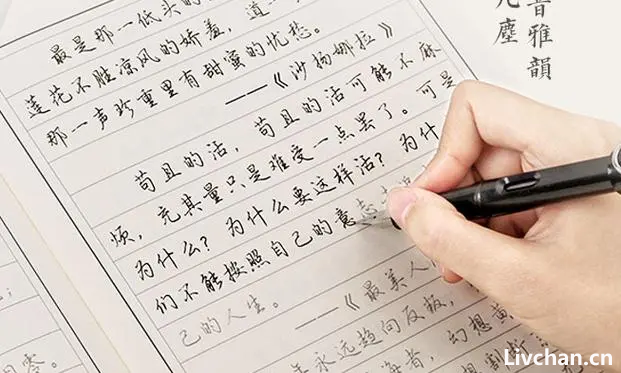 音雅韻
凡塵
最是那一低头的
莲花不胜凉风的娇羞，道一
那一声珍重里有甜蜜的忧愁。
——《沙扬娜拉》
苟且的活，苟且的活可能不麻
烦，充其量只是难受一点罢了。可是
为什么？为什么要这样活？为什
们不能按照自己的意志
己的人生。
——《最美人
年永远趋向反叛，
海者，幻想黄
想割断
零。
Livchan.cn